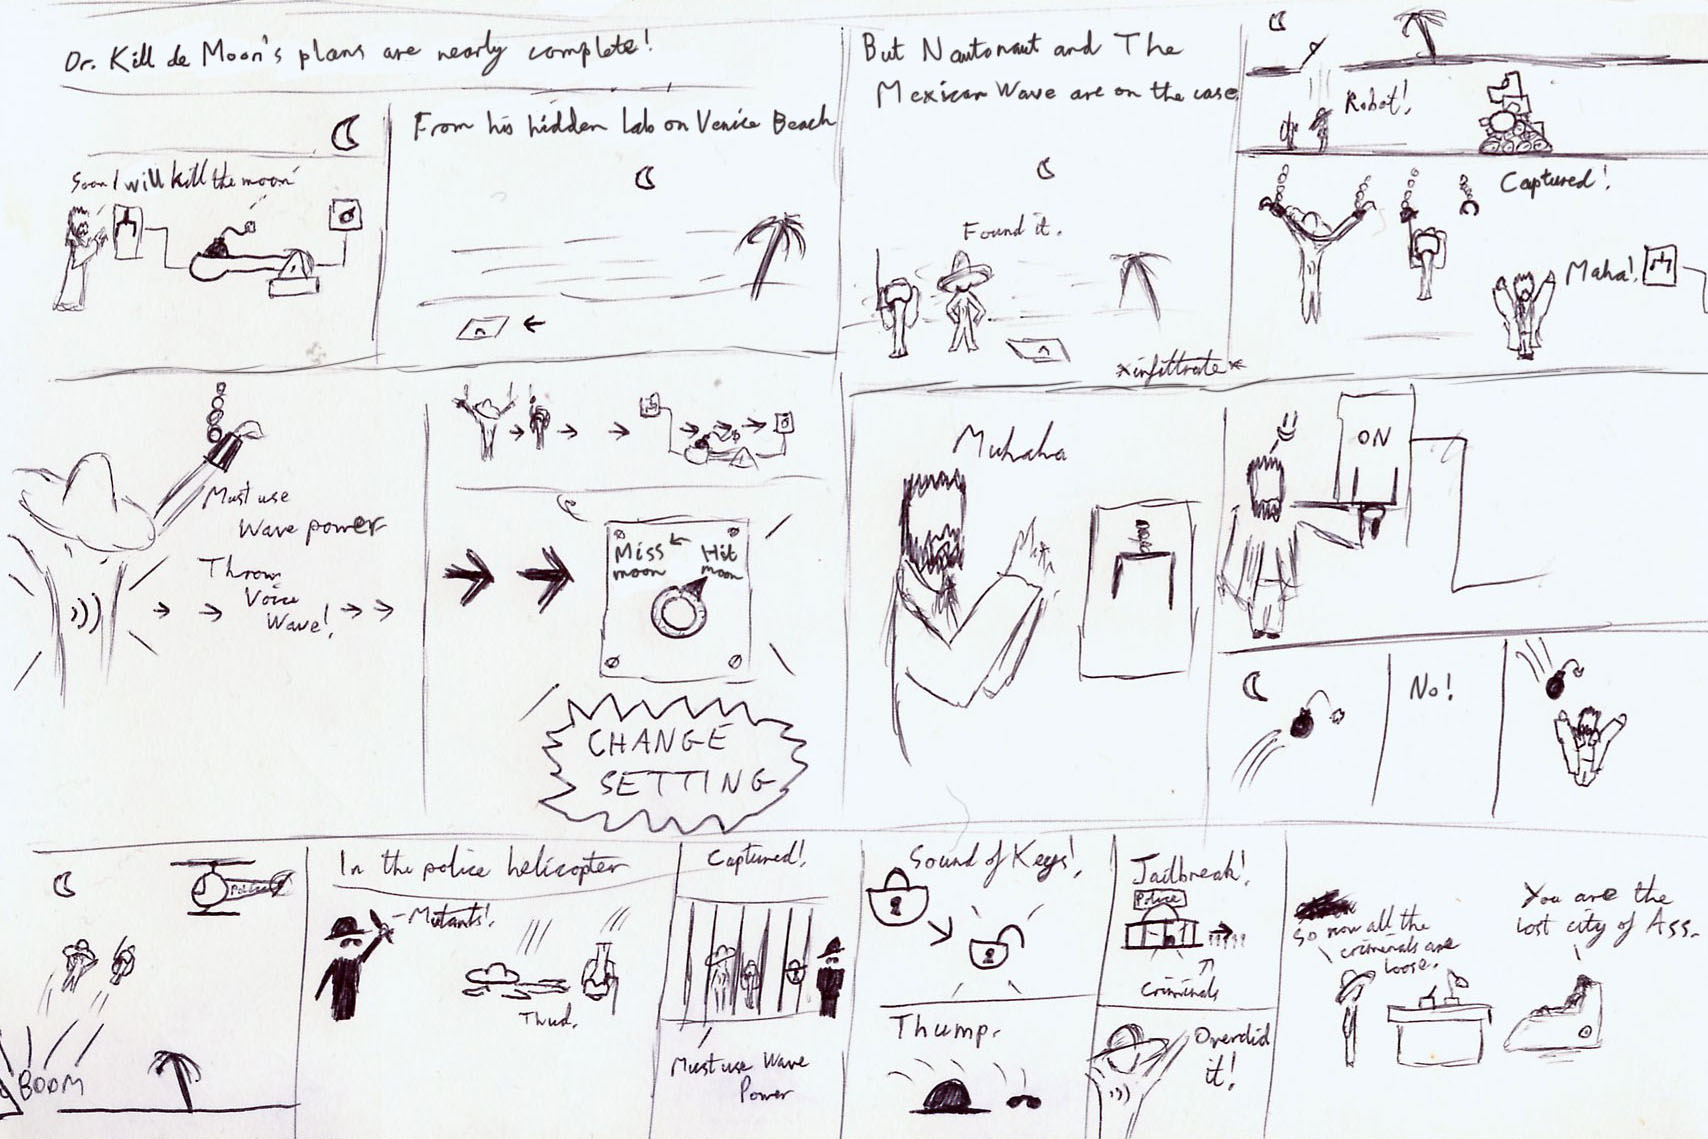 Dr. Kill de Moon's plans are nearly complete!
Soon I will kill the moon
From his hidden Lab on Venice Beach
But Nautonaut and The
Mexican Wave are on the case
Found it.
*infiltrate*
Robot!
Captured!
Maha!
Must use
Wave power
Throw
Voice
Wave!
Miss
moon
Hit
moon
CHANGE
SETTING
Muhaha
ON
No!
BOOM
Police
In the police helicopter
Mutants!
Thud.
Captured!
Must use Wave
Power
Sound of Keys!
Thump.
Jailbreak!
Police
Criminals
Overdid
it!
So now all the
criminals are
loose.
You are the
lost city of Ass.